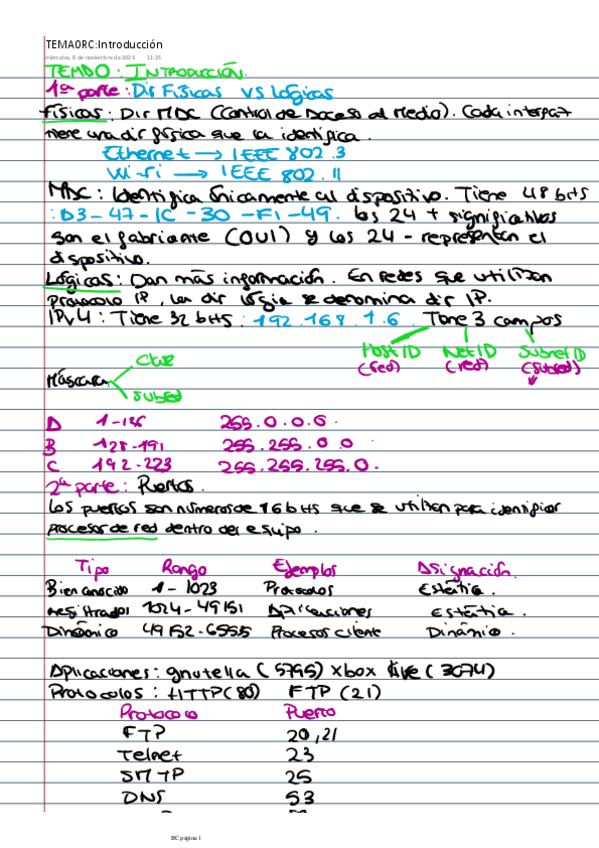 TEMA0RC:Introducción
miércoles, 8 de noviembre de 2023 11:25
TEMA0: INTRODUCCIÓN.
1ª parte: Dir Físicas VS Lógicas
Físicas: Dir MAC (Control de Acceso al Medio). Cada interfaz
tiene una dir física que la identifica.
Ethernet → IEEE 802.3
Wi-Fi → IEEE 802.11
MAC: Identifica únicamente al dispositivo. Tiene 48 bits
:D3-47-1C-30-F1-49. los 24 + significativos
son el fabricante (OUI) y los 24 - representan el
dispositivo.
Lógicas: Dan más información. En redes que utilizan
Protocolo IP, la dir lógica se denomina dir IP.
IPv4: Tiene 32 bits: 192.168.1.6 Tiene 3 campos
Host ID Net ID Subnet ID
(red) (red) (subred)
Clase
Máscara
Subred
A 1-126 255.0.0.0.
B 128-191 255.255.0.0
C 192-223 255.255.255.0.
2ª parte: Puertos.
Los puertos son números de 16 bits que se utilizan para identificar
procesos de red dentro del equipo.
Tipo Rango Ejemplos Asignación.
Bien conocido 1-1023 Protocolos Estática.
registrados 1024-49151 Aplicaciones Estática.
Dinámico 49152-65535 Procesos cliente Dinámico.
Aplicaciones: gnutella (5795) Xbox live (3074)
Protocolos: HTTP(80) FTP (21)
Protocolo Puerto
FTP 20,21
Telnet 23
SMTP 25
DNS 53
RC página 1